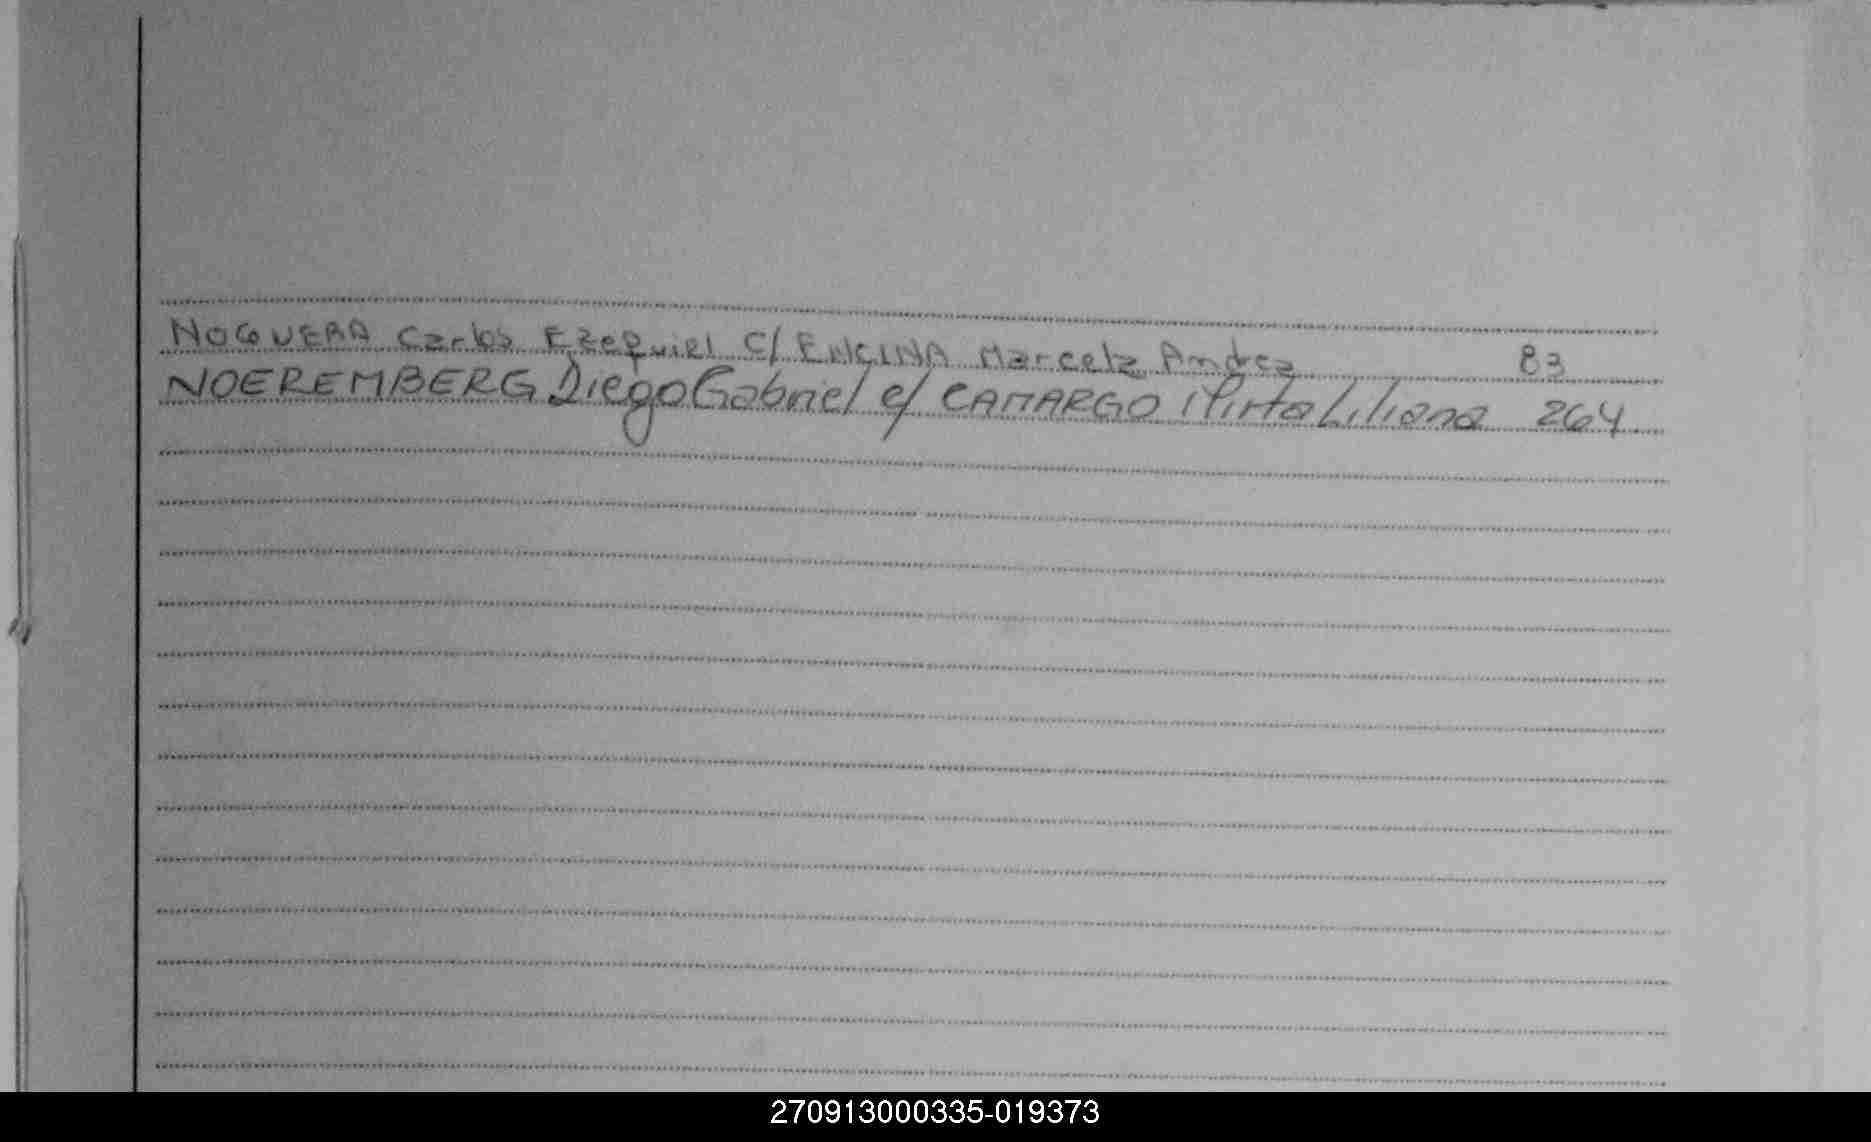 NOGUERA Carlos Ezequiel C/ ENCINA Marcela Andrea 83
NOEREMBERG Diego Gabriel c/ CAMARGO Mirta Liliana 264
270913000335-019373